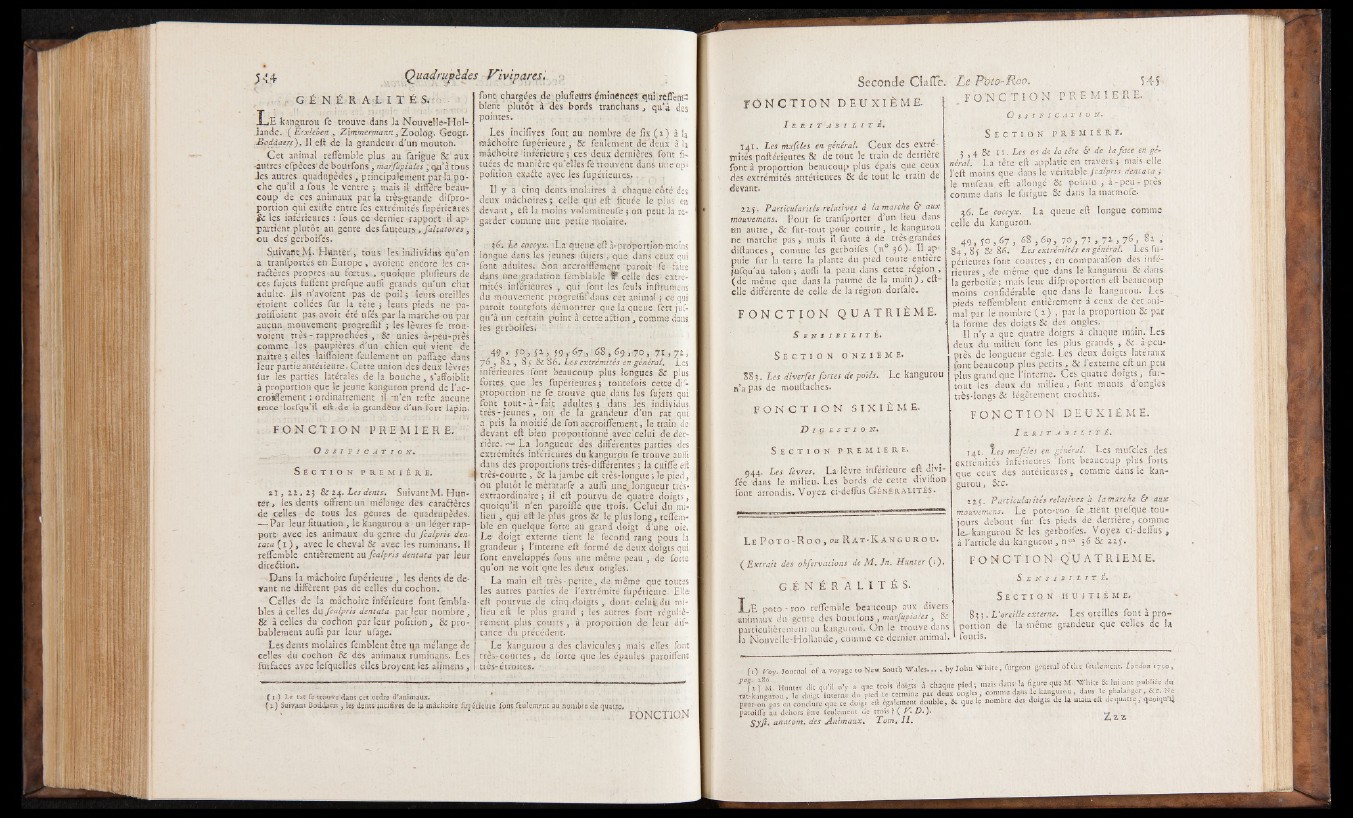 544 Quadrupèdes Vivipares.
GÉNÉRALITÉS.
LE kangurou se trouve dans la Nouvelle-Hol-
lande. ( Erxleben, Zimmermann, Zoolog. Geogr.
Boddaert). Il est de la grandeur d'un mouton.
Cet animal ressemble plus au sarigue & aux
autres espèces de boursons, marsupiales, qu'à tous
les autres quadrupèdes, principalement par la po-
che qu'il a sous le ventre ; mais il diffère beau-
coup de ces animaux par la très-grande dispro-
portion qui existe entre les extrémités supérieures
& les inférieures : sous ce dernier rapport il ap-
partient plutôt au genre des sauteurs, saltatores,
ou des gerboises.
Suivant M. Hunter, tous les individus qu'on
a transportés en Europe, avoient encore les ca-
ractères propres au fœtus, quoique plusieurs de
ces sujets fussent presque aussi grands qu'un chat
adulte. Ils n'avoient pas de poils ; leurs oreilles
étoient collées sur la tête ; leurs pieds ne pa-
roissoient pas avoir été usés par la marche ou par
aucun mouvement progressif ; les lèvres se trou-
voient très-rapprochées, & unies à-peu-près
comme les paupières d'un chien qui vient de
naître ; elles laissoient seulement un passage dans
leur partie antérieure. Cette union des deux lèvres
sur les parties latérales de la bouche, s'affoiblit
à proportion que le jeune kangurou prend de l'ac-
croissement : ordinairement il n'en reste aucune
trace lorsqu'il est de la grandeur d'un fort lapin.
FONCTION PREMIERE.
OSSIFICATION.
SECTION PREMIÈRE.
21, 22, 23 & 24. Les dents. Suivant M. Hun-
ter, les dents offrent un mélange des caractères
de celles de tous les genres de quadrupèdes.
— Par leur situation, le kangurou a un léger rap-
port avec les animaux du genre du scalpris den-
tata (1), avec le cheval & avec les ruminans. Il
ressemble entièrement au scalpris dentata par leur
direction.
Dans la mâchoire supérieure, les dents de de-
vant ne diffèrent pas de celles du cochon.
Celles de la mâchoire inférieure sont sembla-
bles à celles du scalpris dentata par leur nombre,
& à celles du cochon par leur position, & pro-
bablement aussi par leur usage.
Les dents molaires semblent être un mélange de
celles du cochon & des animaux ruminans. Les
surfaces avec lesquelles elles broyent les alimens,
sont chargées de plusieurs éminences qui ressem-
blent plutôt à des bords tranchans, qu'à des
pointes.
Les incisives sont au nombre de six (2) à la
mâchoire supérieure, & seulement de deux à la
mâchoire inférieure ; ces deux dernières sont si-
tuées de manière qu'elles se trouvent dans une op-
position exacte avec les supérieures.
Il y a cinq dents molaires à chaque côté des
deux mâchoires ; celle qui est située le plus en
devant, est la moins volumineuse ; on peut la re-
garder comme une petite molaire.
36. Le coccyx. La queue est à-proportion moins
longue dans les jeunes sujets, que dans ceux qui
sont adultes. Son accroissement paroît se faire
dans une gradation semblable à celle des extré-
mités inférieures, qui sont les seuls instrumens
du mouvement progressif dans cet animal ; ce qui
paroît toutefois démontrer que la queue sert jus-
qu'à un certain point à cette action, comme dans
les gerboises.
49, 50, 52, 59, 67, 68, 69, 70, 71, 72,
76, 82, 85 & 86. Les extrémités en général. Les
inférieures sont beaucoup plus longues & plus
fortes que les supérieures ; toutefois cette dis-
proportion ne se trouve que dans les sujets qui
sont tout-à-fait adultes ; dans les individus
très-jeunes, ou de la grandeur d'un rat qui
a pris la moitié de son accroissement, le train de
devant est bien proportionné avec celui de der-
rière. — La longueur des différentes parties des
extrémités inférieures du kangurou se trouve aussi
dans des proportions très-différentes ; la cuisse est
très-courte, & la jambe est très-longue ; le pied,
ou plutôt le métatarse a aussi une longueur très-
extraordinaire ; il est pourvu de quatre doigts,
quoiqu'il n'en paroisse que trois. Celui du mi-
lieu, qui est le plus gros & le plus long, ressem-
ble en quelque sorte au grand doigt d'une oie.
Le doigt externe tient le second rang pour la
grandeur ; l'interne est formé de deux doigts qui
sont enveloppés sous une même peau, de sorte
qu'on ne voit que les deux ongles.
La main est très-petite, de même que toutes
les autres parties de l'extrémité supérieure. Elle
est pourvue de cinq doigts, dont celui du mi-
lieu est le plus grand ; les autres sont réguliè-
rement plus courts, à proportion de leur dis-
tance du précédent.
Le kangurou a des clavicules ; mais elles sont
très-courtes, de sorte que les épaules paroissent
très-étroites.
(1) Le rat se trouve dans cet ordre d'animaux.
(2) Suivant Boddaert, les dents incisives de la mâchoire supérieure sont seulement au nombre de quatre.
FONCTION
Seconde Classe. Le Poto-Roo. 545
FONCTION DEUXIÈME.
IRRITABILITÉ.
141. Les muscles en général. Ceux des extré-
mités postérieures & de tout le train de derrière
sont à proportion beaucoup plus épais que ceux
des extrémités antérieures & de tout le train de
devant.
225. Particularités relatives à la marche & aux
mouvemens. Pour se transporter d'un lieu dans
un autre, & sur-tout pour courir, le kangurou
ne marche pas, mais il saute à de très grandes
distances, comme les gerboises (n° 36). Il ap-
puie sur la terre la plante du pied toute entière
jusqu'au talon ; aussi la peau dans cette région,
(de même que dans la paume de la main), est-
elle différente de celle de la région dorsale.
FONCTION QUATRIÈME.
SENSIBILITÉ.
SECTION ONZIEME.
883. Les diverses sortes de poils. Le kangurou
n'a pas de moustaches.
FONCTION SIXIÈME.
DIGESTION.
SECTION PREMIERE.
944. Les lèvres. La lèvre inférieure est divi-
sée dans le milieu. Les bords de cette division
sont arrondis. Voyez ci-dessus GÉNÉRALITÉS.
LE POTO-ROO, ou RAT-KANGUROU.
( Extrait des observations de M. Jn. Hunter (1).
GÉNÉRALITÉS.
LE poto-roo ressemble beaucoup aux divers
animaux du genre des boursons, marsupiales, &
particulièrement au kangurou. On le trouve dans
la Nouvelle-Hollande, comme ce dernier animal.
FONCTION PREMIERE.
OSSIFICATION.
SECTION PREMIERE.
3, 4 & 12. Les os de la tête & de la face en gé-
néral. La tête est applatie en travers ; mais elle
l'est moins que dans le véritable scalpris dentata ;
le museau est allongé & pointu, à-peu-près
comme dans le sarigue & dans la marmose.
36. Le coccyx. La queue est longue comme
celle du kangurou.
49, 50, 67, 68, 69, 70, 71, 72, 76, 82,
84, 85 & 86. Les extrémités en général. Les su-
périeures sont courtes, en comparaison des infé-
rieures, de même que dans le kangurou & dans
la gerboise ; mais leur disproportion est beaucoup
moins considérable que dans le kangurou. Les
pieds ressemblent entièrement à ceux de cet ani-
mal par le nombre (2), par la proportion & par
la forme des doigts & des ongles.
Il n'y a que quatre doigts à chaque main. Les
deux du milieu sont les plus grands, & à-peu-
près de longueur égale. Les deux doigts latéraux
sont beaucoup plus petits, & l'externe est un peu
plus grand que l'interne. Ces quatre doigts, sur-
tout les deux du milieu, sont munis d'ongles
très-longs & légèrement crochus.
FONCTION DEUXIÈME.
IRRITABILITÉ.
141. Les muscles en général. Les muscles des
extrémités inférieures sont beaucoup plus forts
que ceux des antérieures, comme dans le kan-
gurou, &c.
225. Particularités relatives à la marche & aux
mouvemens. Le poto-roo se tient presque tou-
jours debout sur ses pieds de derrière, comme
le kangurou & les gerboises. Voyez ci-dessus,
à l'article du kangurou, nos 36 & 225.
FONCTION QUATRIEME.
SENSIBILITÉ.
SECTION HUITIÈME.
833. L'oreille externe. Les oreilles sont à pro-
portion de la même grandeur que celles de la
souris.
(1) Voy. Journal of a voyage to New South Wales.... by John White, surgeon general of the settlement. London 1790,
pag. 280.
(2) M. Hunter dit qu'il n'y a que trois doigts à chaque pied ; mais dans la figure que M. White & lui ont publiée du
rat-kangurou, le doigt interne du pied se termine par deux ongles, comme dans le kangurou, dans le phalanger, &c. Ne
peut-on pas en conclure que ce doigt est également double, & que le nombre des doigts de la main est de quatre, quoiqu'il
paroisse au dehors être seulement de trois ? ( V. D.).
Syst. anatom. des Animaux. Tom. II. Zzz